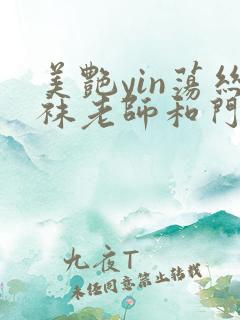 美艷yin蕩絲
襪老師和門
九夜T
未经同意禁止转载